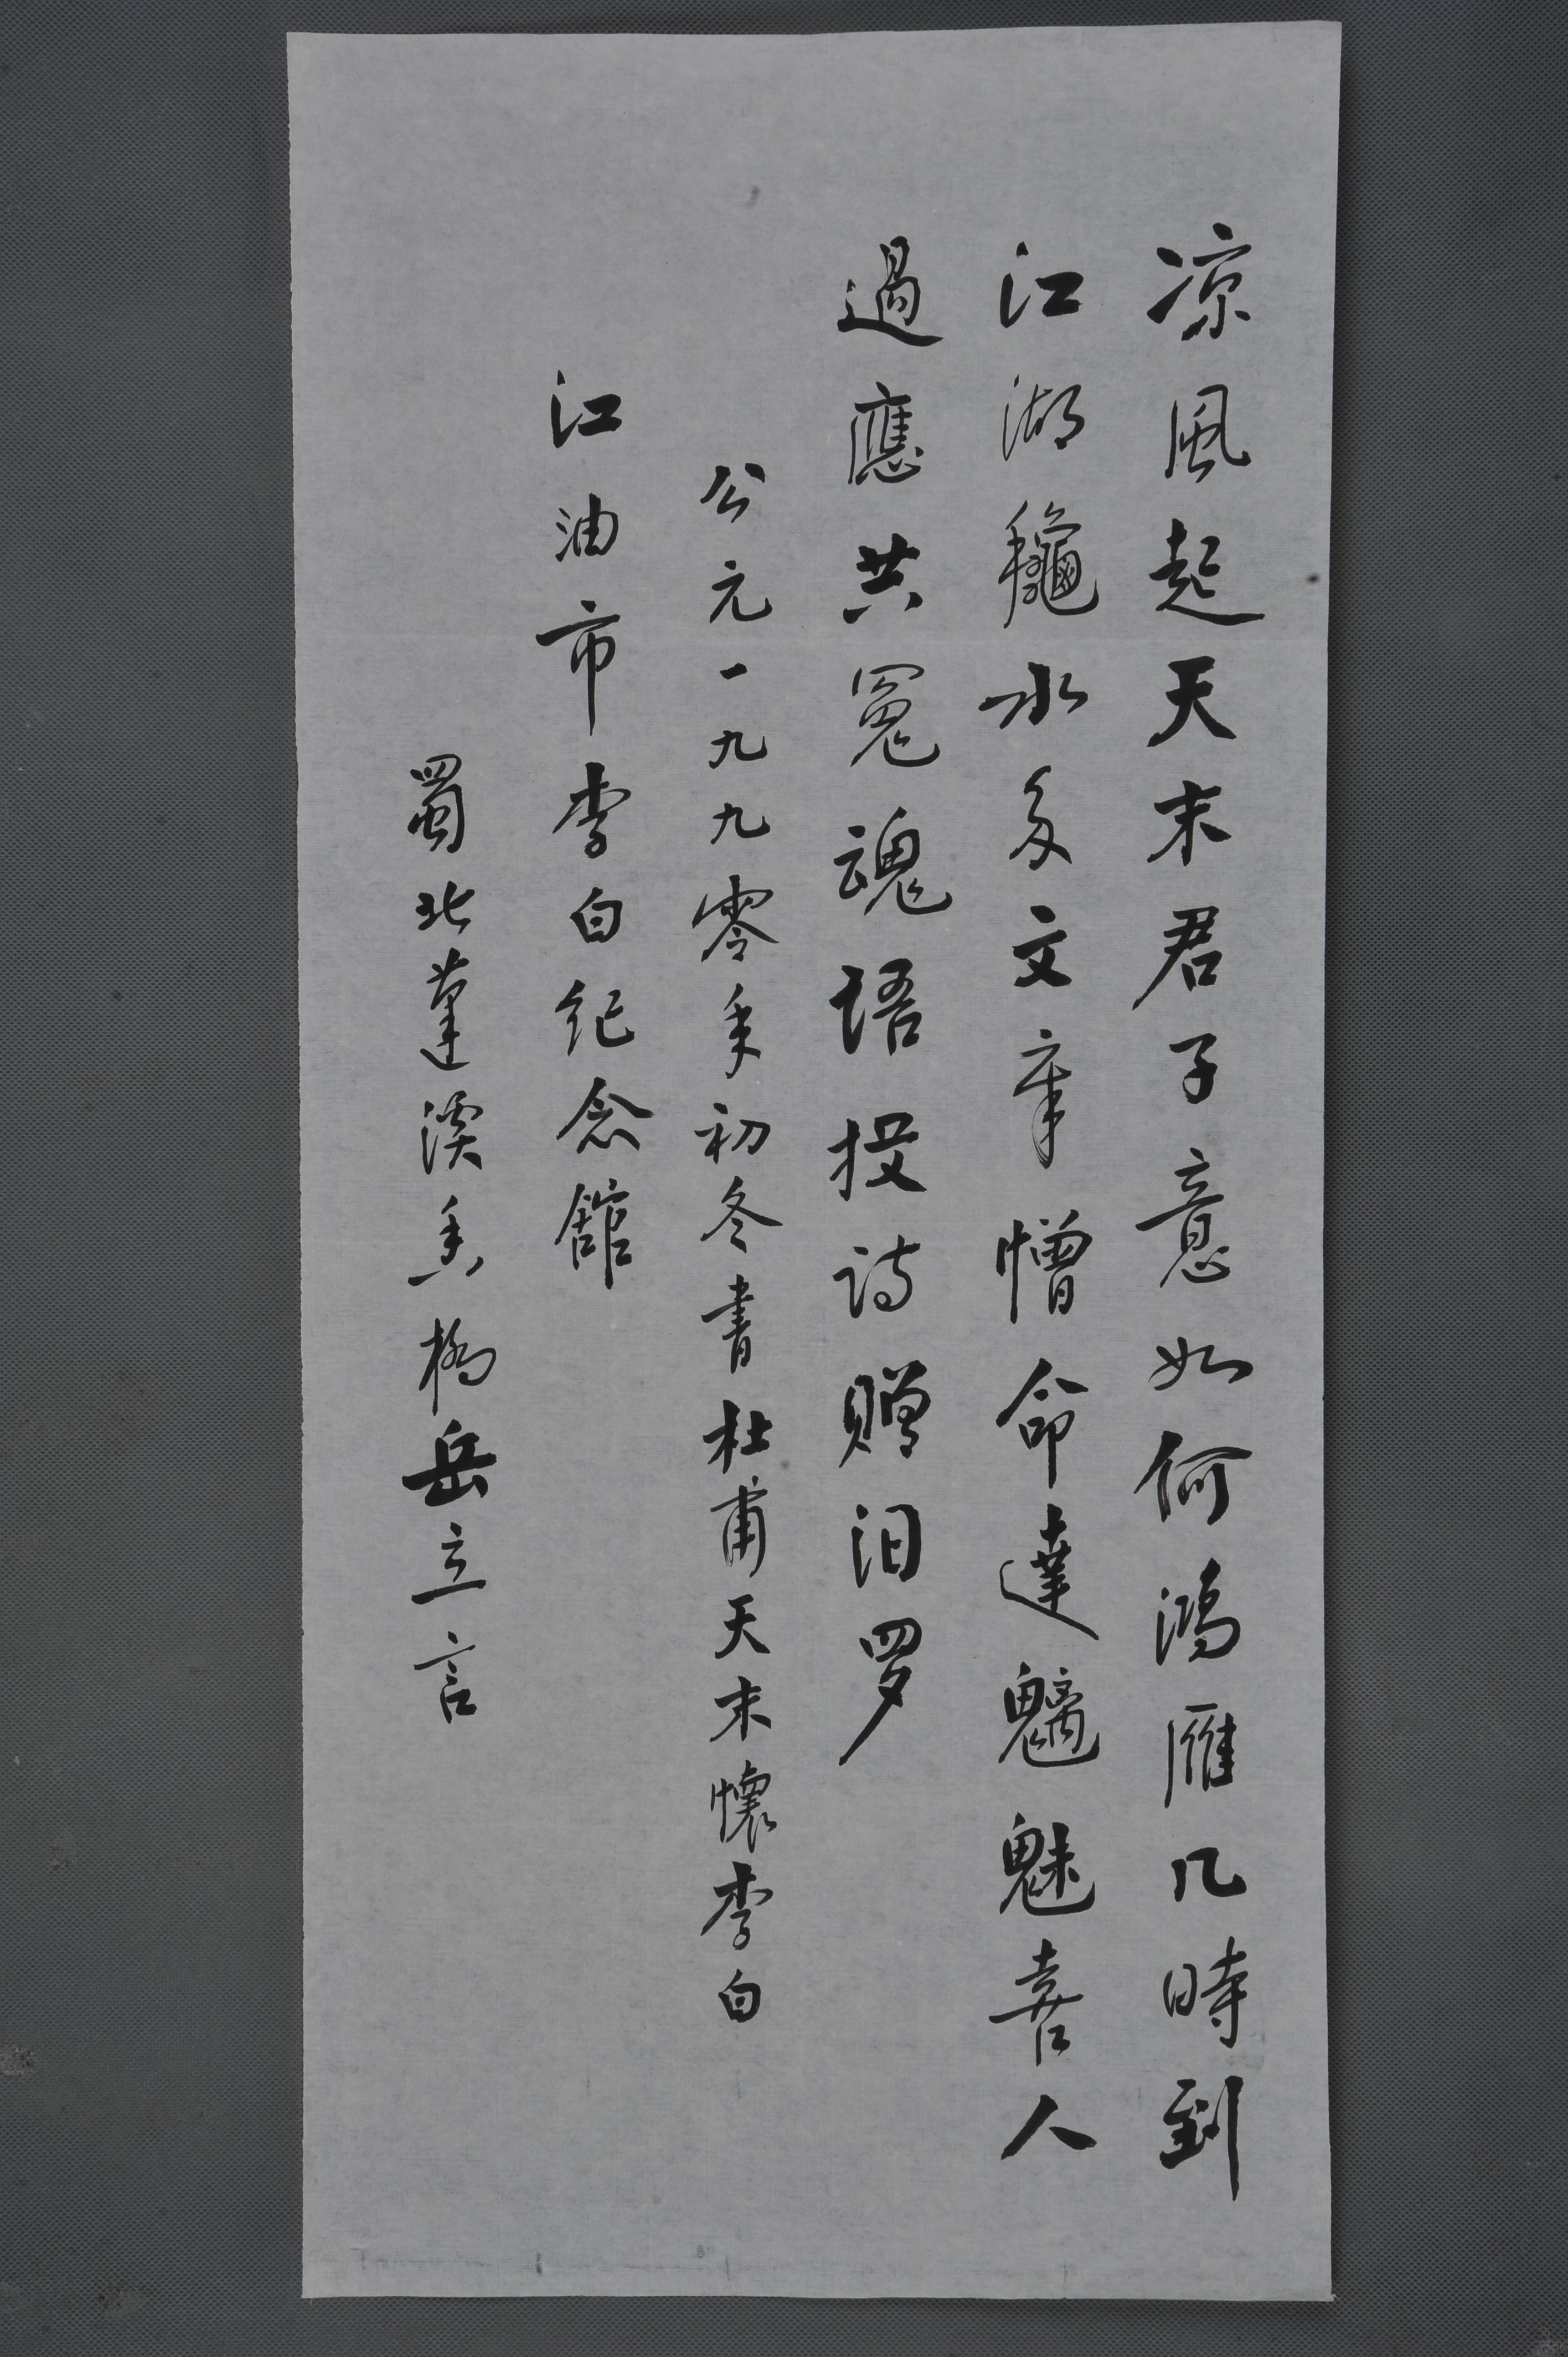 凉風起天末君子意如何鴻雁几時到
江湖龝水多文章憎命達魑魅喜人
過應共冤魂语投诗赠汨罗
公元一九九零年初冬書杜甫天末懷李白
江油市李白纪念舘
蜀北蓬溪吉橋岳立言